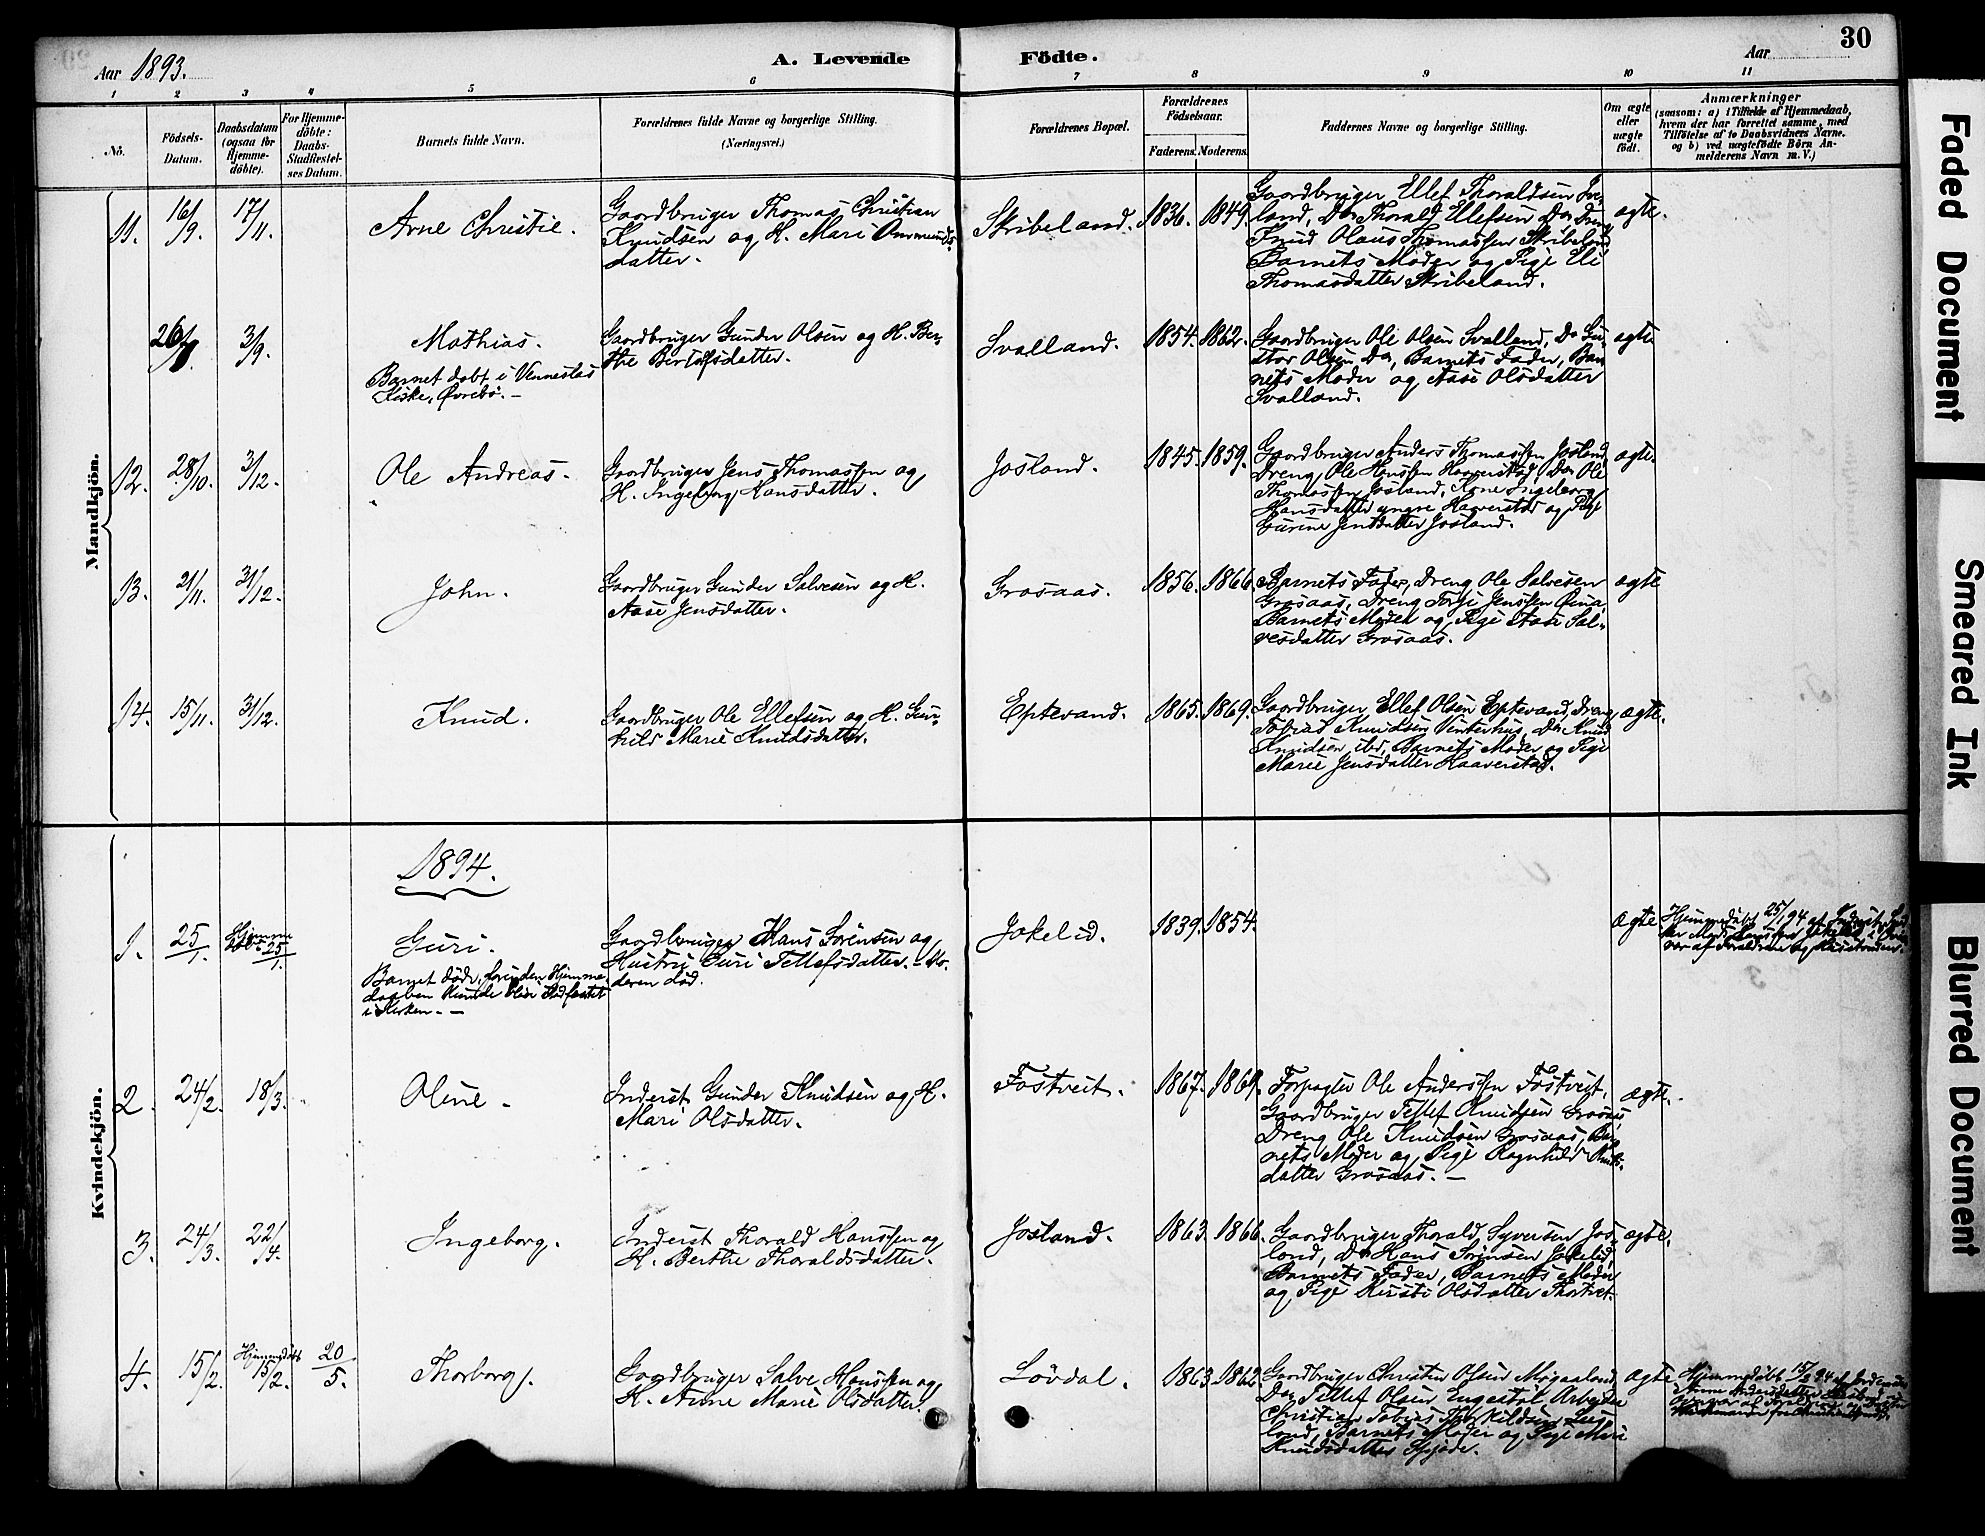 Aar 1893.
A. Levende Födte.
Aar
30
1 2 3 4 5 6 7 8 9 10 11
Nö.
Födsels-
Datum.
Daabsdatum
(ogsaa for
Hjemme-
döbte).
For Hjemme-
döbte:
Daabs-
Stadfæstel-
ses Datum.
Barnets fulde Navn.
Forældrenes fulde Navne og borgerlige Stilling.
(Næringsvei.)
Forældrenes Bopæl.
Forældrenes
Födselsaar.
Faderens. Moderens.
Faddernes Navne og borgerlige Stilling.
Om ægte
eller
uægte
födt.
Anmærkninger
(saasom: a) i Tilfælde af Hjemmedaab,
hvem der har forrettet samme, med
Tilföielse af to Daabsvidners Navne.
og b) ved uægtefödte Börn An-
melderens Navn m. V.)
Mandkjön.
11. 16/9. 17/11. Arne Christie.
Gaardbruger Thomas Christian
Knudsen og H. Mari Ommunds-
datter.
Skribeland. 1836. 1849.
Gaardbruger Ellef Thoraldsen
land, Do Thorald Ellefsen Do Dreng
Knud Olaus Thomassen Skribeland
Barnets Moder og Pige Eli
Thomasdatter Skribeland.
ægte.
26/8. 3/9. Mathias.
Barnet døbt i Vennesla
Kirke, Øvrebø. -
Gaardbruger Gunder Olsen og H. Ber-
the Bertelsdatter.
Svalland. 1854. 1862.
Gaardbruger Ole Olsen Svalland, Do Gu-
stav Olsen Do, Barnets Fader, Bar-
nets Moder og Aase Olsdatter
Svalland.
ægte
12. 28/10. 3/12. Ole Andreas.
Gaardbruger Jens Thomassen og
H. Ingeborg Hansdatter.
Josland. 1845. 1859.
Gaardbruger Anders Thomassen Josland
Dreng Ole Hanssen Haaverstad, Do Ole
Thomassen Josland, Kone Ingeborg
Hansdatter yngre Haaverstad og Pige
Gurine Jensdatter Josland.
ægte.
13. 21/11. 31/12. John.
Gaardbruger Gunder Salvesen og H.
Aase Jensdatter.
Grosaas. 1856. 1866.
Barnets Fader, Dreng Ole Salvesen
Grosaas, Dreng Terje Jenssen
Barnets Moder og Pige Aase Sal-
vesdatter Grosaas.
ægte
14. 15/11. 31/12. Knud.
Gaardbruger Ole Ellefsen og H. Gun-
hild Marie Knudsdatter.
Eptevand. 1865. 1869.
Gaardbruger Ellef Olsen Eptevand, Dreng
Tobias Knudsen Vinterhus, Do Knud
Knudsen ibd, Barnets Moder og Pige
Marie Jensdatter Haaverstad.
ægte.
1894.
Kvindekjön.
1. 25/1. Hjemme
døbt 25/1. Guri.
Barnet døde, forinden Hjemme-
daaben kunde blive stadfæstet
i Kirken. -
Gaardbruger Hans Sørensen og
Hustru Guri Tellefsdatter. - Mo-
deren død.
Jokelid. 1839. 1854.
ægte
Hjemmedøbt 25/1 94 af
2. 24/2. 18/3. Oline -
Inderst Gunder Knudsen og H.
Mari Olsdatter.
Fostveit. 1867. 1869.
Forpagter Ole Anderssen Fostveit,
Gaardbruger Tellef Knudsen Grosaas,
Dreng Ole Knudsen Grosaas, Bar-
nets Moder og Pige Ragnhild Knuds-
datter Grosaas. -
ægte.
3. 24/3. 22/4. Ingeborg.
Inderst Thorald Hanssen og
H. Berthe Thoraldsdatter.
Josland. 1863. 1866.
Gaardbruger Thorald Syversen Jos-
land, Do Hans Sørensen Jokelid,
Barnets Fader, Barnets Moder
og Pige Kirsti Olsdatter
ægte.
4. 15/2. Hjemmedøbt
15/2. 20/5. Thorborg.
Gaardbruger Salve Hanssen og
H. Anne Marie Olsdatter.
Løvdal. 1863. 1862.
Gaardbruger Christen Olsen
Do Tellef Olsen Engestøl, Arbeider
Christian Tobias Thorkildsen
land, Barnets Moder og Pige Mari
Knudsdatter
ægte
Hjemmedøbt 15/2 94 af Jordemoder
Anne Andersdatter
Faded Document
Smeared Ink
Blurred Document